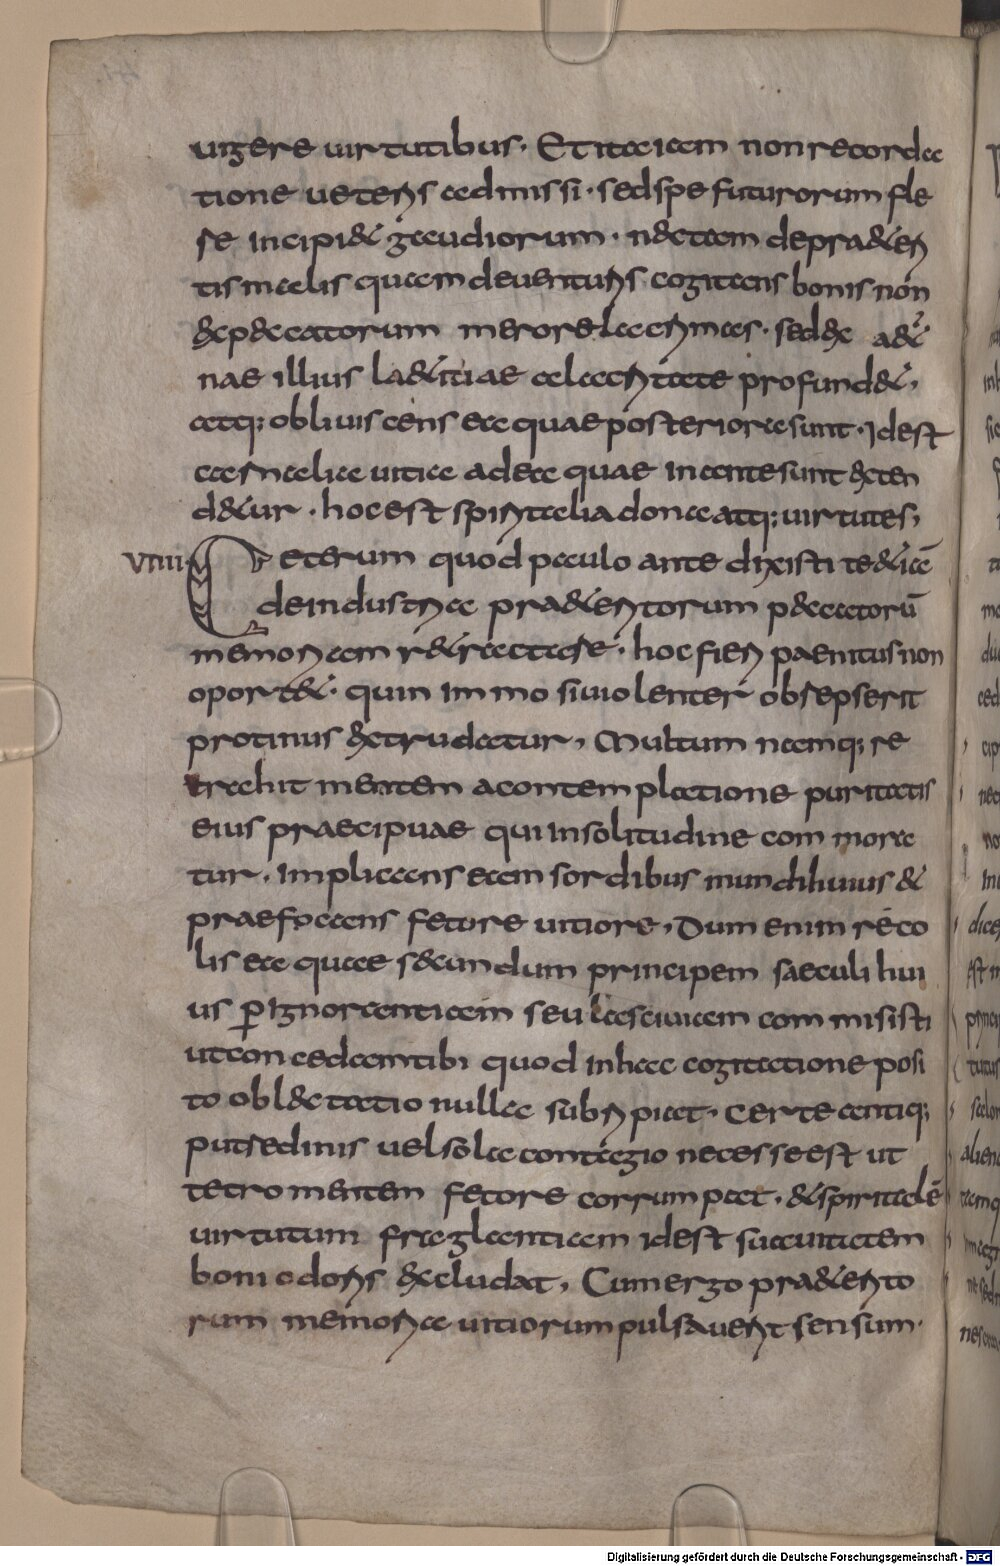 urgere uirtutibus. Et ita iam non recorda
tione ueteris admissi. sed spe futurorum fle
re incipi& gaudiorum. n&tam de pr&eri
tis malis quam de uenturis cogitans bonis non
& peccatorum merore lacrimas. sed & ad&er
nae illius la&itiae alacritate profund&,
atq; obliuiscens ea quae posteriora sunt. id est
carnalia uitia ad ea quae in ante sunt exten
d&ur. hoc est spiritalia dona atq; uirtutes,
VIIII Ceterum quod paulo ante dixisti te &iā
de industria pr&eritorum peccatorū
memoriam r&ractare. hoc fieri paenitus non
oport&. quin immo si uiolenter obsepserit
protinus extrudatur, Multum namq; re
trahit mentem a contemplatione puritatis
eius praecipuae qui in solitudine commora
tur. implicans eam sordibus mundi huius &
praefocans fetore uitiore, Dum enim reco
lis ea quae secundum principem saeculi hui
us p ignorantiam seu lasciuiam commisisti
ut concedam tibi quod in hac cogitatione posi
to oblectatio nulla subripiat. certe antiq;
putredinis uel sola contagio necesse est ut
tetro mentem fetore corrumpat. & spiritalē
uirtutum fraglantiam id est suauitatem
boni odoris excludat, Cum ergo pr&erito
rum memoria uitiorum pulsauerit sensum.
Digitalisierung gefördert durch die Deutsche Forschungsgemeinschaft - DFG